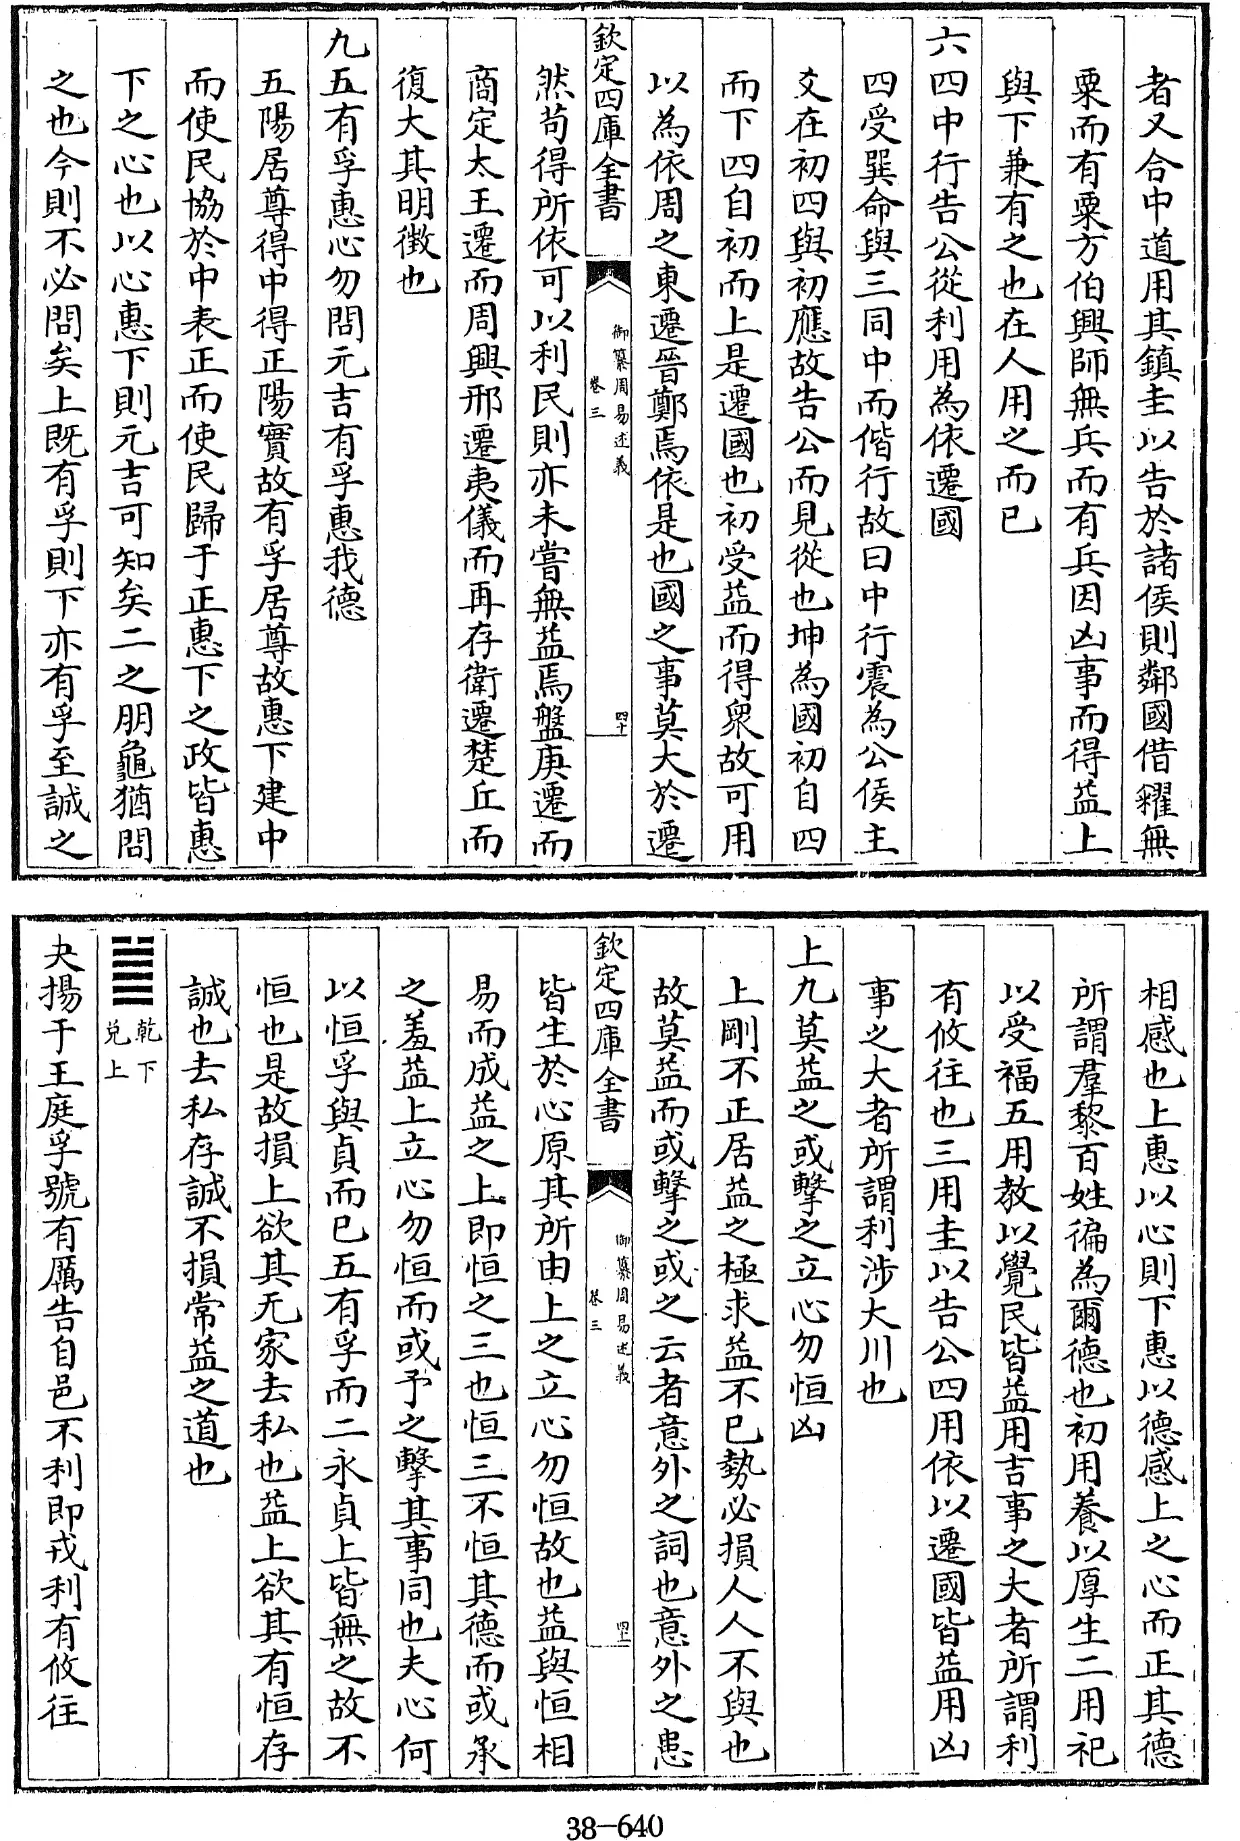 者又合中道用其鎮圭以告於諸侯則鄰國借糴無
粟而有粟方伯興師無兵而有兵因凶事而得益上
與下兼有之也在人用之而已
六四中行告公從利用為依遷國
四受巽命與三同中而偕行故曰中行震為公侯主
爻在初四與初應故告公而見從也坤為國初自四
而下四自初而上是遷國也初受益而得衆故可用
以為依周之東遷晉鄭焉依是也國之事莫大於遷
欽定四庫全書
御纂周易述義
卷三
四十
然苟得所依可以利民則亦未嘗無益焉盤庚遷而
商定太王遷而周興邢遷夷儀而再存衛遷楚丘而
復大其明徴也
九五有孚惠心勿問元吉有孚惠我德
五陽居尊得中得正陽實故有孚居尊故惠下建中
而使民協於中表正而使民歸于正惠下之政皆惠
下之心也以心惠下則元吉可知矣二之朋龜猶問
之也今則不必問矣上既有孚則下亦有孚至誠之
相感也上惠以心則下惠以德感上之心而正其德
所謂羣黎百姓徧為爾德也初用養以厚生二用祀
以受福五用教以覺民皆益用吉事之大者所謂利
有攸往也三用圭以告公四用依以遷國皆益用凶
事之大者所謂利涉大川也
上九莫益之或擊之立心勿恒凶
上剛不正居益之極求益不已勢必損人人不與也
故莫益而或擊之或之云者意外之詞也意外之患
欽定四庫全書
御纂周易述義
卷三
四十一
皆生於心原其所由上之立心勿恒故也益與恒相
易而成益之上即恒之三也恒三不恒其德而或承
之羞益上立心勿恒而或予之擊其事同也夫心何
以恒孚與貞而已五有孚而二永貞上皆無之故不
恒也是故損上欲其无家去私也益上欲其有恒存
誠也去私存誠不損常益之道也
䷪乾下
兌上
夬揚于王庭孚號有厲告自邑不利即戎利有攸往
38-640